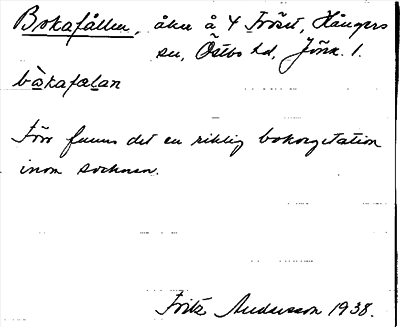 Bokafållen, åker å 4 Fröset, Hångers
sn, Östbo hd, Jönk. l.
bòkafælan
Förr funns det en riklig bokvegetation
inom socknen.
Fritz Andersson 1938.